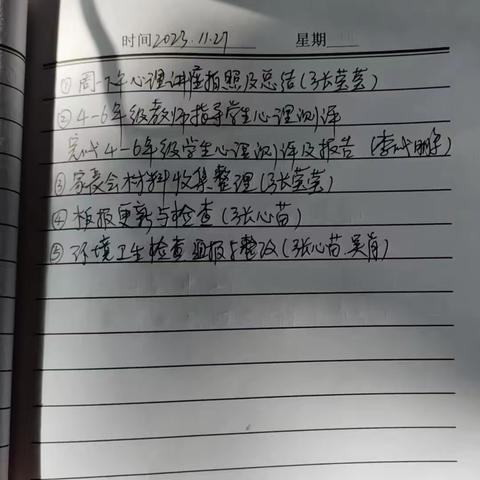 时间2023.11.27 星期
①周一下午心理讲座拍照及总结(张莹莹)
②4-6年级教师指导学生心理测评
完成4-6年级学生心理测评及报告(李 )
③家长会材料收集整理(张莹莹)
④板报更新与检查(张心苗)
⑤环境卫生检查通报与整改(张心苗.吴肖)